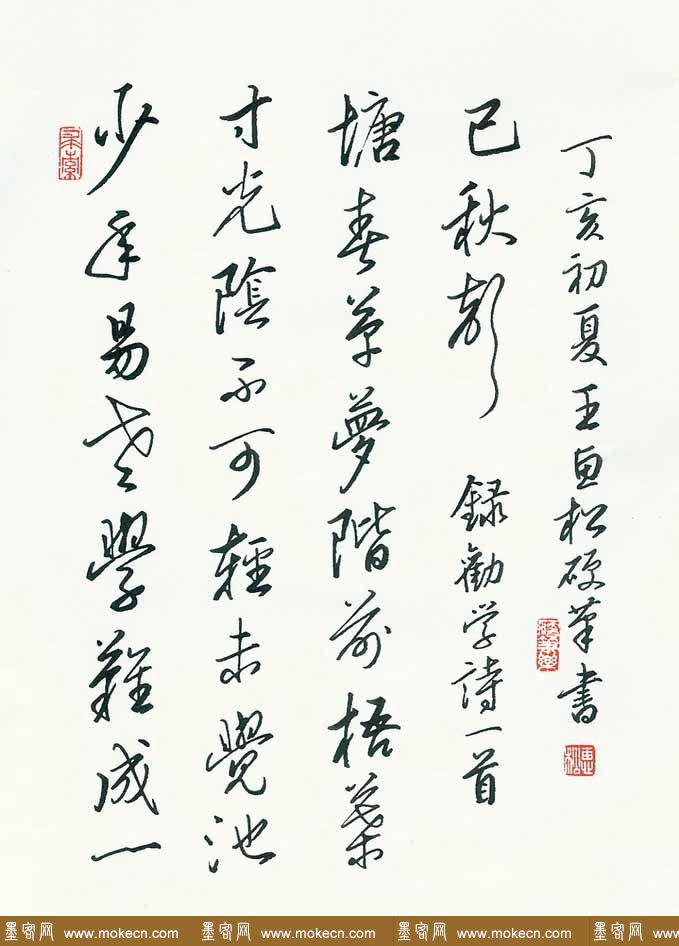 少年易老學難成一
寸光陰不可輕未覺池
塘春草夢階前梧葉
已秋聲 録勸学詩一首
丁亥初夏王惠松硬筆書
墨客网 www.mokecn.com 墨客网 www.mokecn.com 墨客网 www.mokecn.com 墨客网 www.mokecn.com